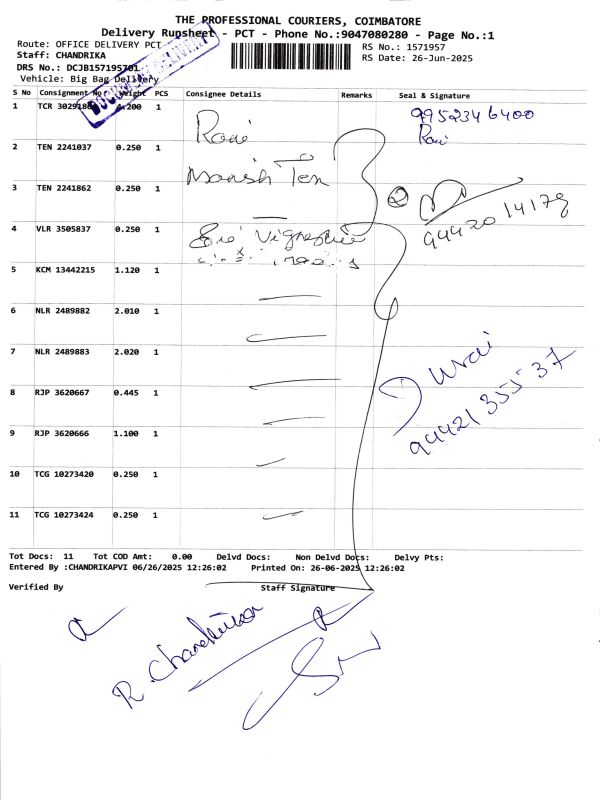 THE PROFESSIONAL COURIERS, COIMBATORE
Delivery Runsheet - PCT - Phone No.:9047080280 - Page No.:1
Route: OFFICE DELIVERY PCT
RS No.: 1571957
Staff: CHANDRIKA
RS Date: 26-Jun-2025
DRS No.: DCJB157195701
Vehicle: Big Bag Delivery
S No Consignment No Weight PCS Consignee Details Remarks Seal & Signature
1 TCR 1 Rani 9952346400
Rani
2 TEN 2241037 0.250 1 Manish Ten
3 TEN 2241862 0.250 1
94420 14178
4 VLR 3505837 0.250 1 Sri
5 KCM 13442215 1.120 1
6 NLR 2489882 2.010 1
7 NLR 2489883 2.020 1
94421 35537
8 RJP 3620667 0.445 1
9 RJP 3620666 1.100 1
10 TCG 10273420 0.250 1
11 TCG 10273424 0.250 1
Tot Docs: 11 Tot COD Amt: 0.00 Delvd Docs: Non Delvd Docs: Delvy Pts:
Entered By :CHANDRIKAPVI 06/26/2025 12:26:02 Printed On: 26-06-2025 12:26:02
Verified By Staff Signature